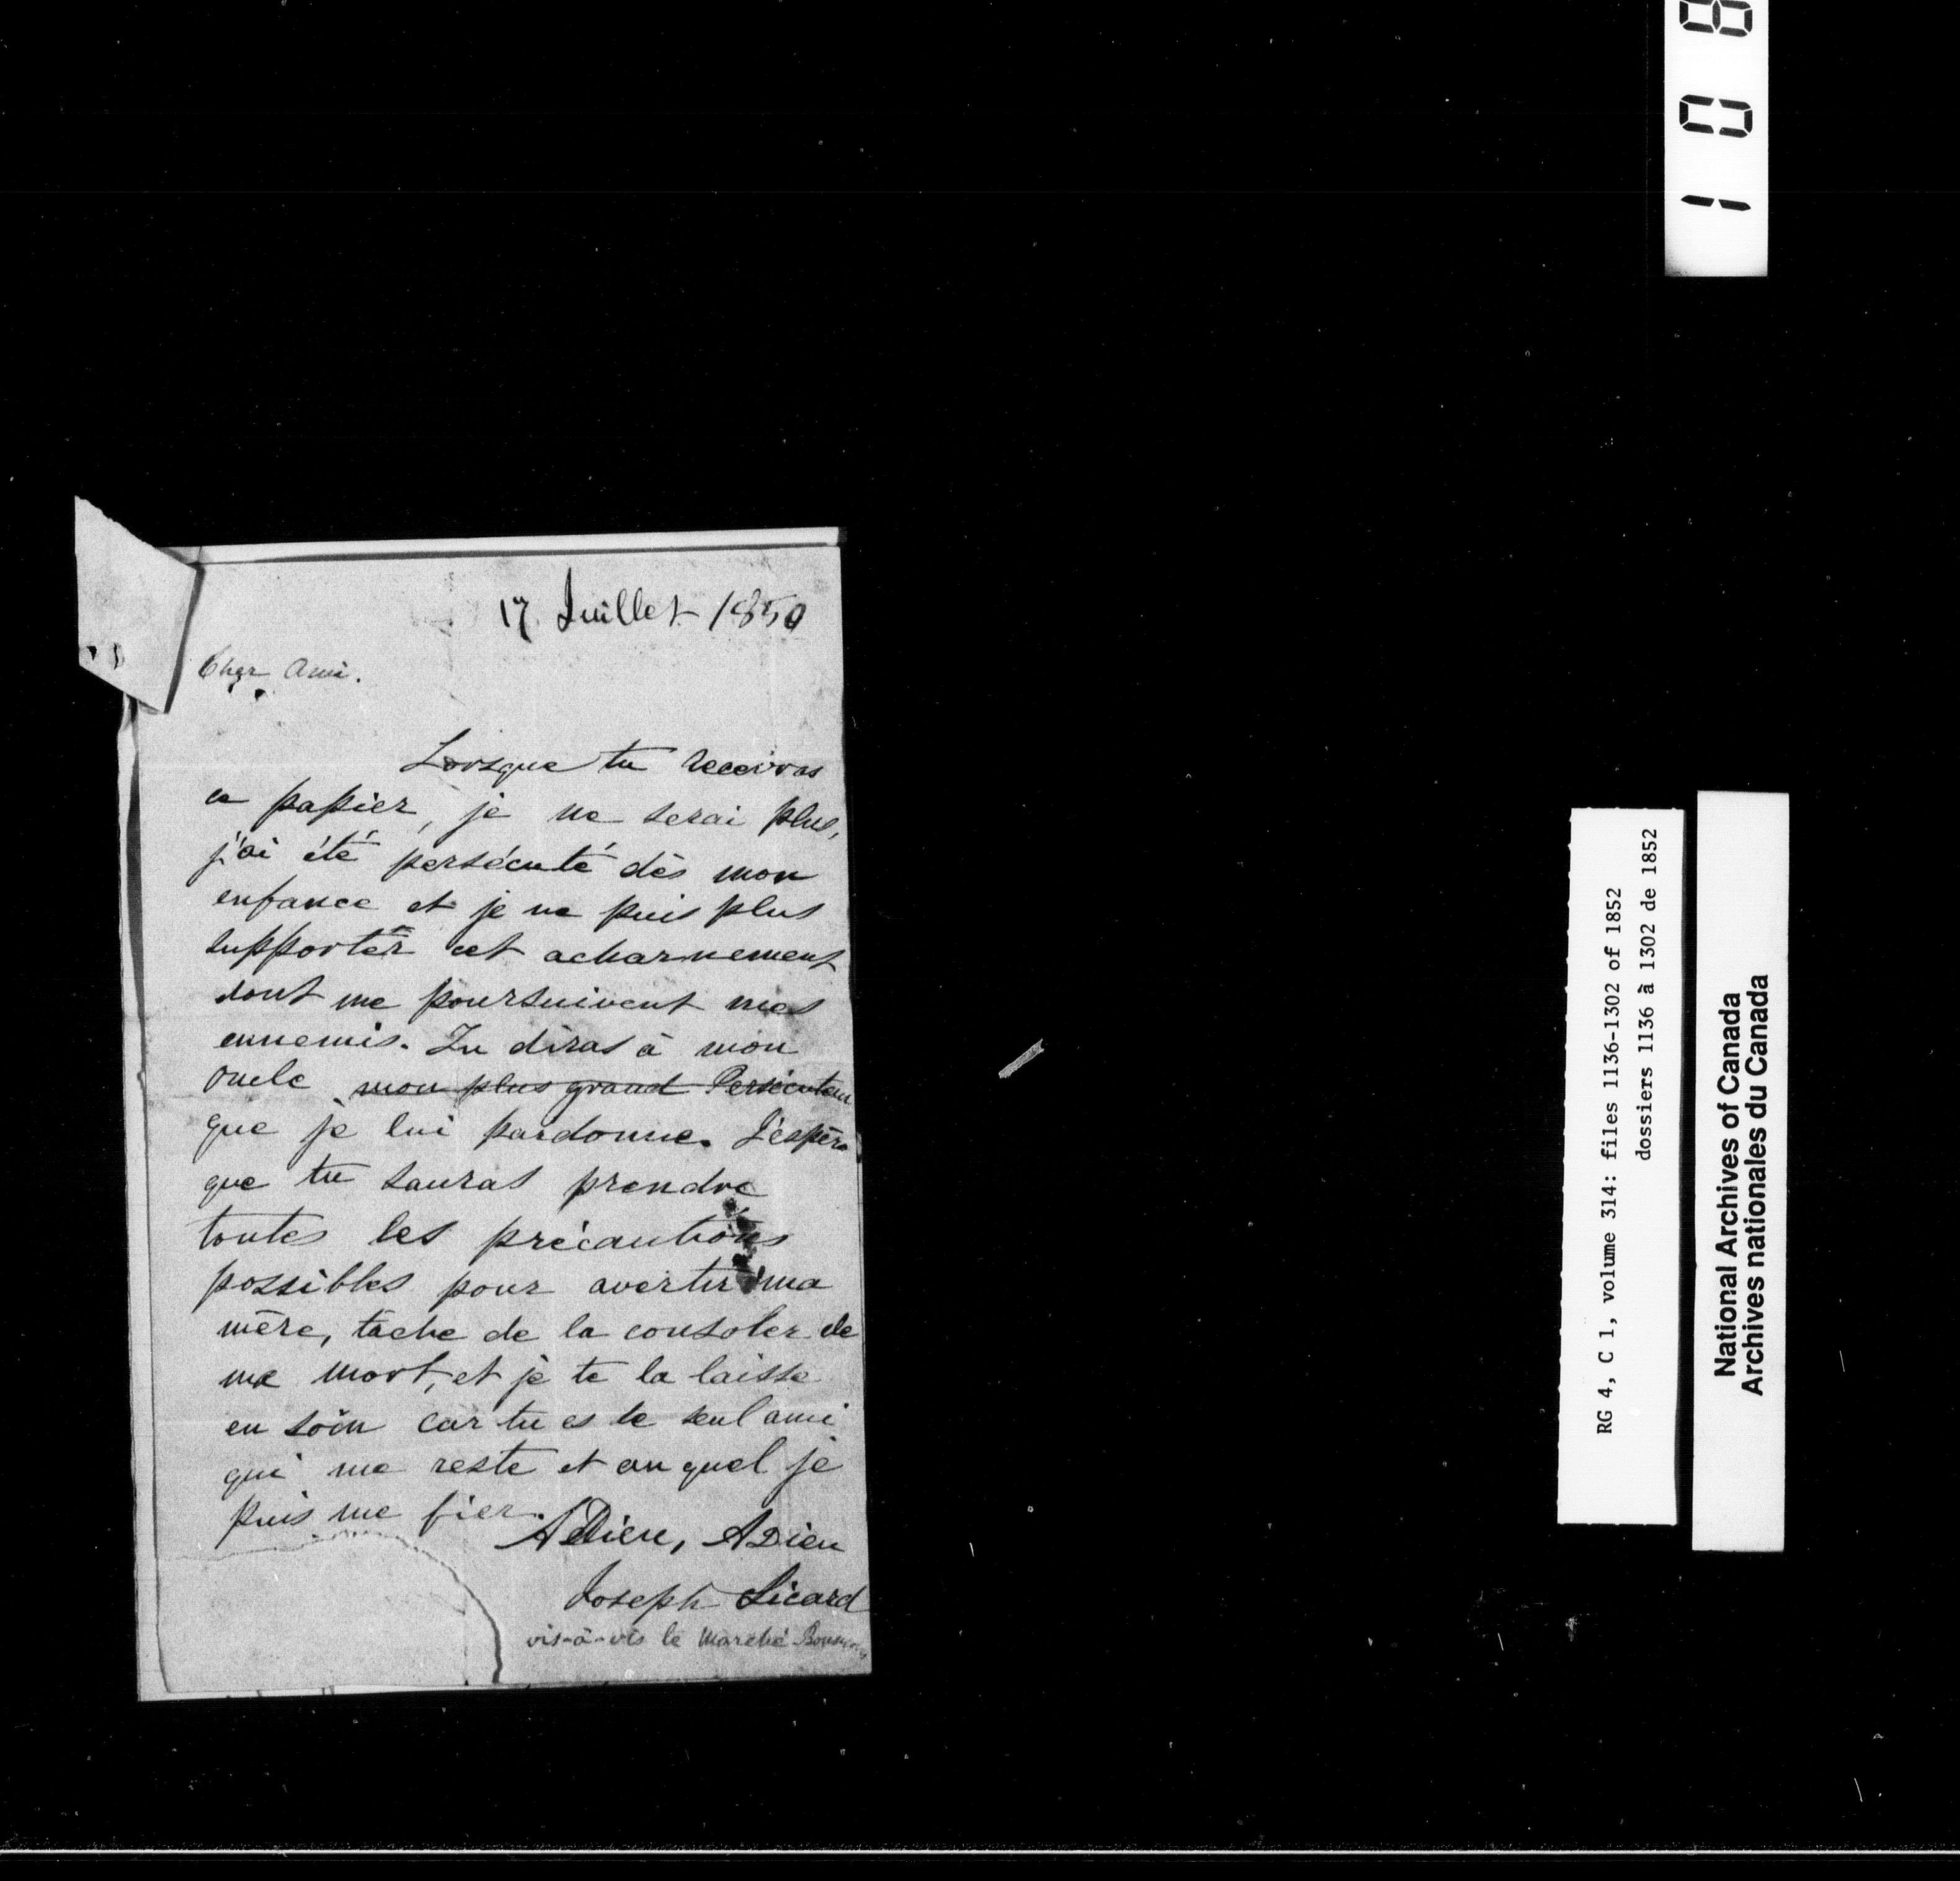 17 Juillet 1850
Cher Ami.
Lorsque tu recevras
ce papier, je ne serai plus,
j'ai été persécuté dès mon
enfance et je ne puis plus
supporter cet acharnement
dont me poursuivent mes
ennemis. Tu diras à mon
oncle mon plus grand Persécuteur
que je lui pardonne. J'espère
que tu sauras prendre
toutes les précautions
possibles pour avertir ma
mère, tache de la consoler de
ma mort, et je te la laisse
en soin car tu es le seul ami
qui me reste et au quel je
puis me fier.
Adieu, Adieu
Joseph Sicard
vis-à-vis le Marché
RG 4, C 1, volume 314: files 1136-1302 of 1852
dossiers 1136 à 1302 de 1852
National Archives of Canada
Archives nationales du Canada
1 0 8